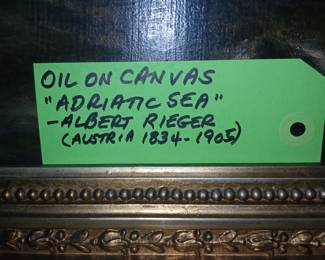 OIL ON CANVAS
"ADRIATIC SEA"
- ALBERT RIEGER
(AUSTRIA 1834-1905)